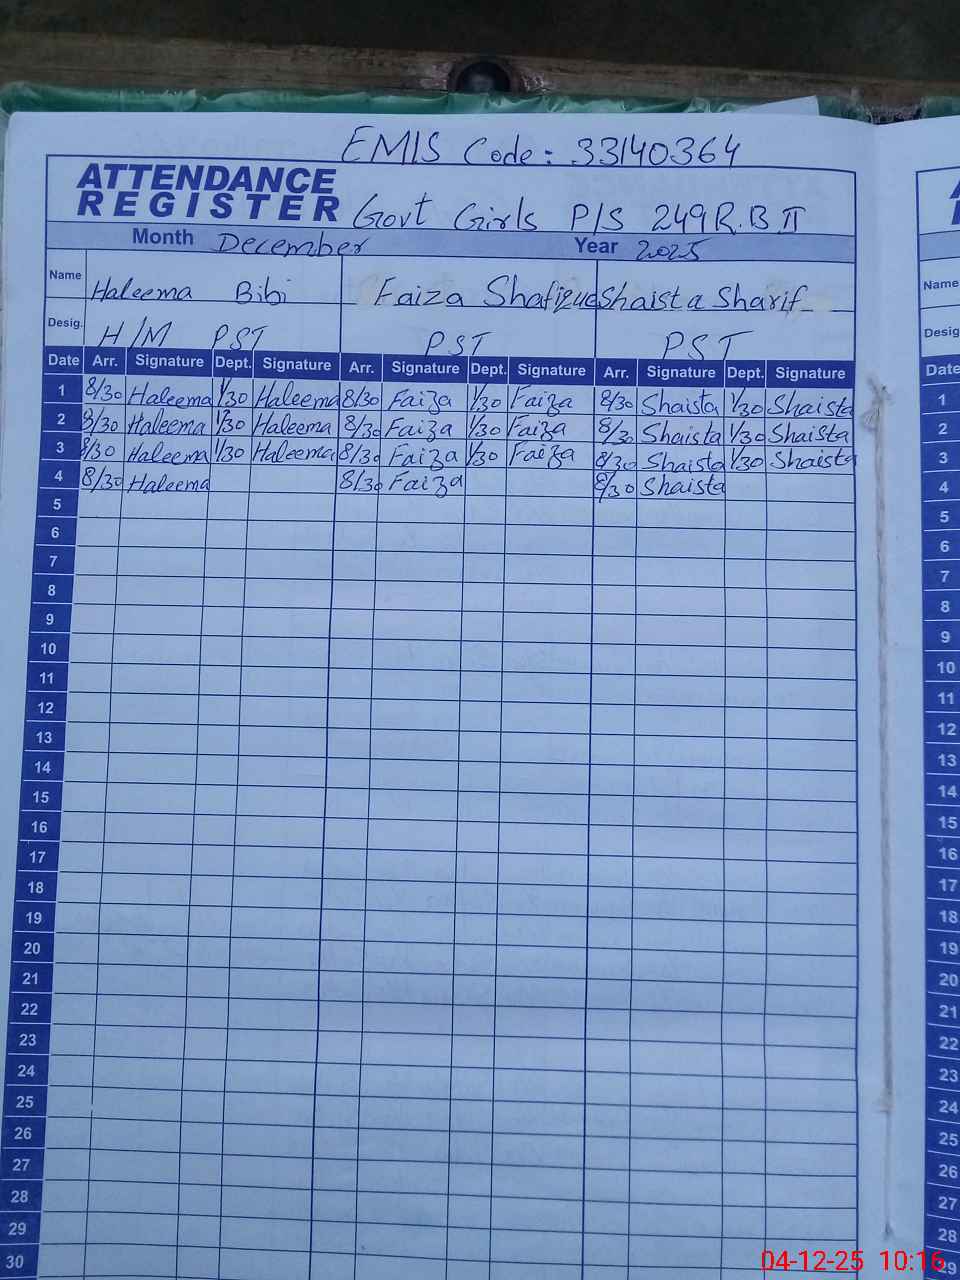 EMIS Code: 33140364
ATTENDANCE
REGISTER Govt Girls P/S 249 R.B II
Month December Year 2025
Name Haleema Bibi Faiza Shafique Shaista Sharif Name
Desig. H/M PST PST PST Desig
Date Arr. Signature Dept. Signature Arr. Signature Dept. Signature Arr. Signature Dept. Signature Date
1 8/30 Haleema 1/30 Haleema 8/30 Faiza 1/30 Faiza 8/30 Shaista 1/30 Shaista 1
2 8/30 Haleema 1/30 Haleema 8/30 Faiza 1/30 Faiza 8/30 Shaista 1/30 Shaista 2
3 8/30 Haleema 1/30 Haleema 8/30 Faiza 1/30 Faiza 8/30 Shaista 1/30 Shaista 3
4 8/30 Haleema 8/30 Faiza 8/30 Shaista 4
5 5
6 6
7 7
8 8
9 9
10 10
11 11
12 12
13 13
14 14
15 15
16 16
17 17
18 18
19 19
20 20
21 21
22 22
23 23
24 24
25 25
26 26
27 27
28 28
29 29
30
04-12-25 10:16